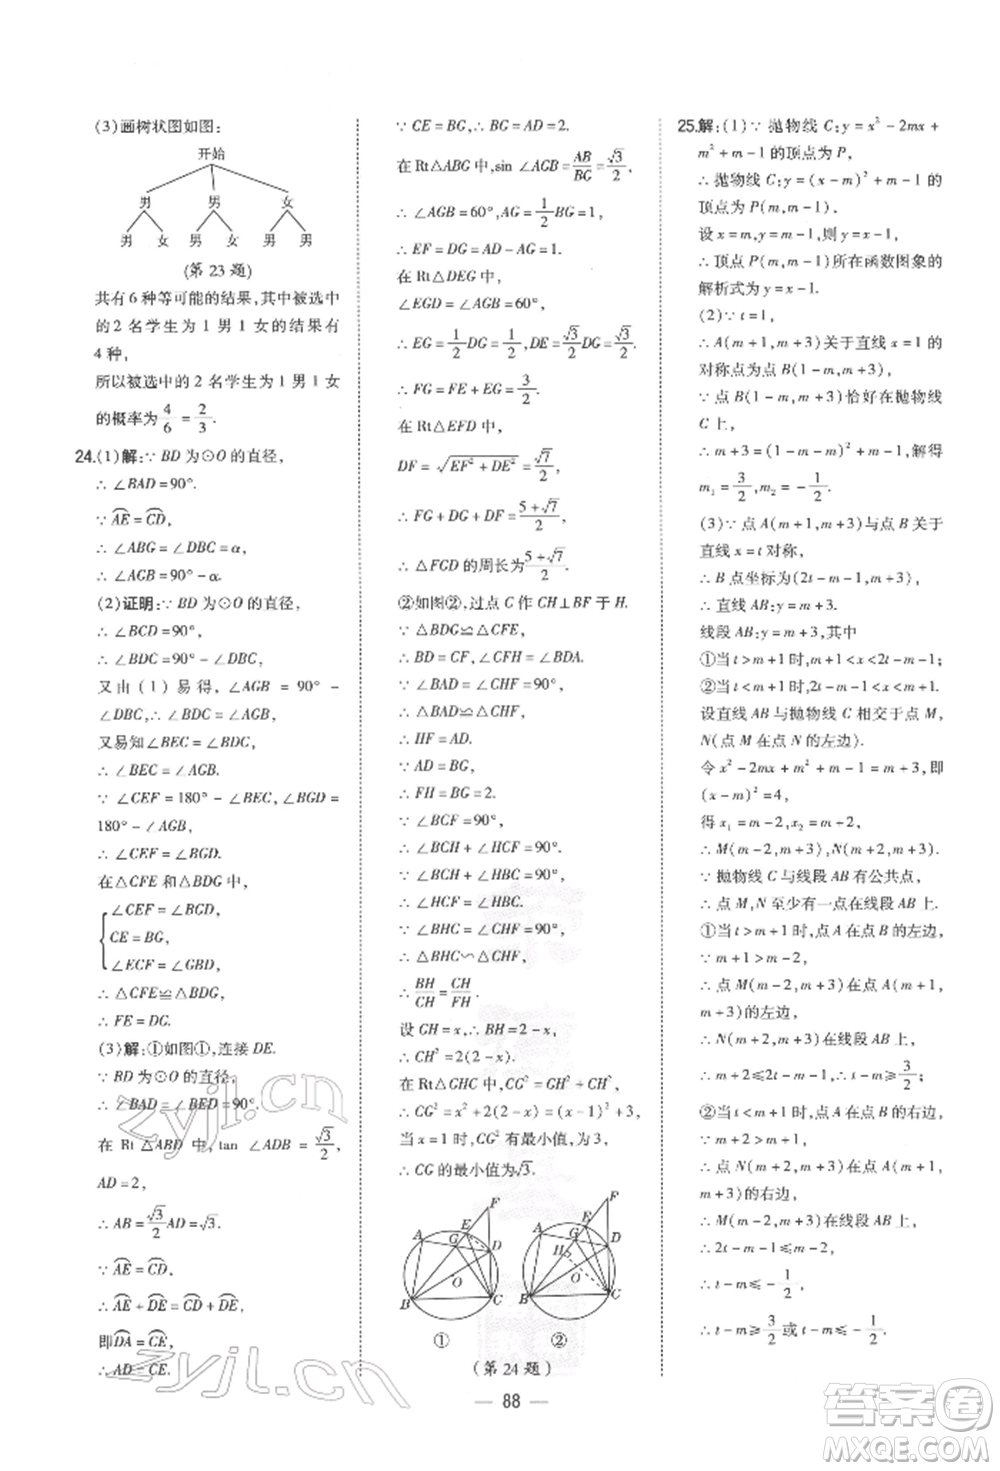 (3)画树状图如图:
开始
男 男 女
男 女 男 女 男 男
(第 23 题)
共有 6 种等可能的结果,其中被选中
的 2 名学生为 1 男 1 女的结果有
4 种,
所以被选中的 2 名学生为 1 男 1 女
的概率为4/6 = 2/3.
24.(1)解:∵ BD 为⊙O 的直径,
∴ ∠BAD=90°.
∵ ⌒AE=⌒CD,
∴ ∠ABG=∠DBC=α,
∴ ∠AGB=90°-α.
(2)证明:∵ BD 为⊙O 的直径,
∴ ∠BCD=90°,
∴ ∠BDC=90°-∠DBC,
又由 (1) 易得, ∠AGB = 90° -
∠DBC,∴ ∠BDC=∠AGB,
又易知∠BEC=∠BDC,
∴ ∠BEC=∠AGB.
∵ ∠CEF=180°-∠BEC,∠BGD=
180°-∠AGB,
∴ ∠CEF=∠BGD.
在△CFE 和△BDG 中,
∠CEF=∠BGD,
CE=BG,
∠ECF=∠GBD,
∴ △CFE≌△BDG,
∴ FE=DG.
(3)解:①如图①,连接 DE.
∵ BD 为⊙O 的直径,
∴ ∠BAD=∠BED=90°.
在 Rt △ABD 中,tan ∠ADB = √3/2,
AD=2,
∴ AB=√3/2AD=√3.
∵ ⌒AE=⌒CD,
∴ ⌒AE+⌒DE=⌒CD+⌒DE,
即⌒DA=⌒CE,
∴ AD=CE.
∵ CE=BG,∴ BG=AD=2.
在 Rt△ABG 中,sin ∠AGB=AB/BG=√3/2,
∴ ∠AGB=60°,AG=1/2BG=1,
∴ EF=DG=AD-AG=1.
在 Rt△DEG 中,
∠EGD=∠AGB=60°,
∴ EG=1/2DG=1/2,DE=√3/2DG=√3/2,
∴ FG=FE+EG=3/2.
在 Rt△EFD 中,
DF=√(EF²+DE²)=√7/2,
∴ FG+DG+DF=(5+√7)/2,
∴ △FGD 的周长为(5+√7)/2.
②如图②,过点 C 作 CH⊥BF 于 H.
∵ △BDG≌△CFE,
∴ BD=CF,∠CFH=∠BDA.
∵ ∠BAD=∠CHF=90°,
∴ △BAD≌△CHF,
∴ HF=AD.
∵ AD=BG,
∴ FH=BG=2.
∵ ∠BCF=90°,
∴ ∠BCH+∠HCF=90°.
∵ ∠BCH+∠HBC=90°,
∴ ∠HCF=∠HBC.
∵ ∠BHC=∠CHF=90°,
∴ △BHC∽△CHF,
∴ BH/CH=CH/FH.
设 CH=x,∴ BH=2-x,
∴ CH²=2(2-x).
在 Rt△GHC 中,CG²=GH²+CH²,
∴ CG²=x²+2(2-x)=(x-1)²+3,
当 x=1 时,CG² 有最小值,为 3,
∴ CG 的最小值为√3.
F
E
A G D
O
B C
①
F
E
A G D
H
O
B C
②
(第 24 题)
25.解:(1)∵ 抛物线 C:y=x²-2mx+
m²+m-1 的顶点为 P,
∴ 抛物线 C:y=(x-m)²+m-1 的
顶点为 P(m,m-1),
设 x=m,y=m-1,则 y=x-1,
∴ 顶点 P(m,m-1)所在函数图象的
解析式为 y=x-1.
(2)∵ t=1,
∴ A(m+1,m+3)关于直线 x=1 的
对称点为点 B(1-m,m+3).
∵ 点 B(1-m,m+3)恰好在抛物线
C 上,
∴ m+3=(1-m-m)²+m-1,解得
m₁=3/2,m₂=-1/2.
(3)∵ 点 A(m+1,m+3)与点 B 关于
直线 x=t 对称,
∴ B 点坐标为(2t-m-1,m+3),
∴ 直线 AB:y=m+3.
线段 AB:y=m+3,其中
①当 t>m+1 时,m+1<x<2t-m-1;
②当 t<m+1 时,2t-m-1<x<m+1.
设直线 AB 与抛物线 C 相交于点 M,
N(点 M 在点 N 的左边).
令 x²-2mx+m²+m-1=m+3,即
(x-m)²=4,
得 x₁=m-2,x₂=m+2,
∴ M(m-2,m+3),N(m+2,m+3).
∵ 抛物线 C 与线段 AB 有公共点,
∴ 点 M,N 至少有一点在线段 AB 上.
①当 t>m+1 时,点 A 在点 B 的左边,
∵ m+1>m-2,
∴ 点 M(m-2,m+3)在点 A(m+1,
m+3)的左边,
∴ N(m+2,m+3)在线段 AB 上,
∴ m+2≤2t-m-1,∴ t-m≥3/2.
②当 t<m+1 时,点 A 在点 B 的右边,
∵ m+1<m+2,
∴ 点 N(m+2,m+3)在点 A(m+1,
m+3)的右边,
∴ M(m-2,m+3)在线段 AB 上,
∴ 2t-m-1≤m-2,
∴ t-m≤-1/2,
∴ t-m≥3/2或 t-m≤-1/2.
88
zyjl.cn
zyjl.cn
答案圈
MXQE.COM